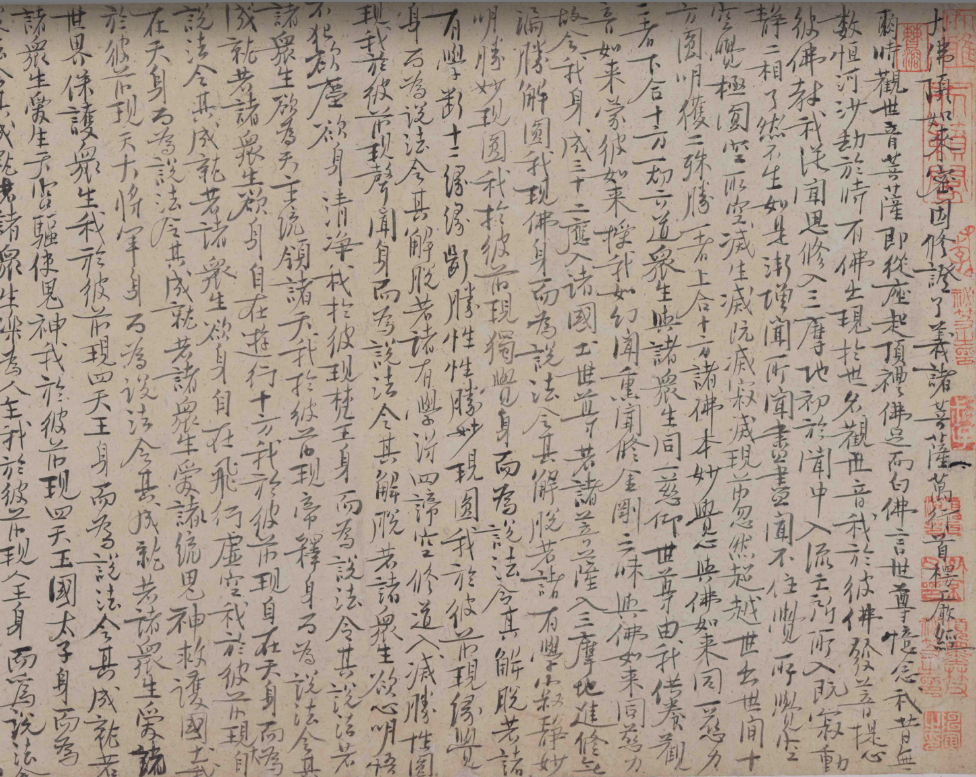 大佛頂如來密因修證了義諸菩薩萬行首楞嚴經
爾時觀世音菩薩即從座起頂禮佛足而白佛言世尊憶念我昔無
數恒河沙劫於時有佛出現於世名觀世音我於彼佛發菩提心
彼佛教我從聞思修入三摩地初於聞中入流亡所所入既寂動
靜二相了然不生如是漸增聞所聞盡盡聞不住覺所覺空
空覺極圓空所空滅生滅既滅寂滅現前忽然超越世出世間十
方圓明獲二殊勝一者上合十方諸佛本妙覺心與佛如來同一慈力
二者下合十方一切六道眾生與諸眾生同一慈仰世尊由我供養觀
音如來蒙彼如來授我如幻聞熏聞修金剛三昧與佛如來同慈力
故令我身成三十二應入諸國土世尊若諸菩薩入三摩地進修無
漏勝解圓我現佛身而為說法令其解脫若諸有學寂靜妙
明勝妙現圓我於彼前現獨覺身而為說法令其解脫若諸
有學斷十二緣緣斷勝性性勝妙現圓我於彼前現緣覺
身而為說法令其解脫若諸有學得四諦空修道入滅勝性圓
現我於彼前現聲聞身而為說法令其解脫若諸眾生欲心明悟
不犯欲塵欲身清淨我於彼現梵王身而為說法令其說法若
諸眾生欲為天主統領諸天我於彼前現帝釋身而為說法令其
成就若諸眾生欲身自在遊行十方我於彼前現自在天身而為
說法令其成就若諸眾生欲身自在飛行虛空我於彼前現自
在天身而為說法令其成就若諸眾生愛諸統鬼神救護國土我
於彼前現天大將軍身而為說法令其成就若諸眾生愛諸
世界保護眾生我於彼前現四天王身而為說法令其成就若
諸眾生愛生天宮驅使鬼神我於彼前現四天王國太子身而為
說法令其成就若諸眾生樂為人主我於彼前現人王身而為說法